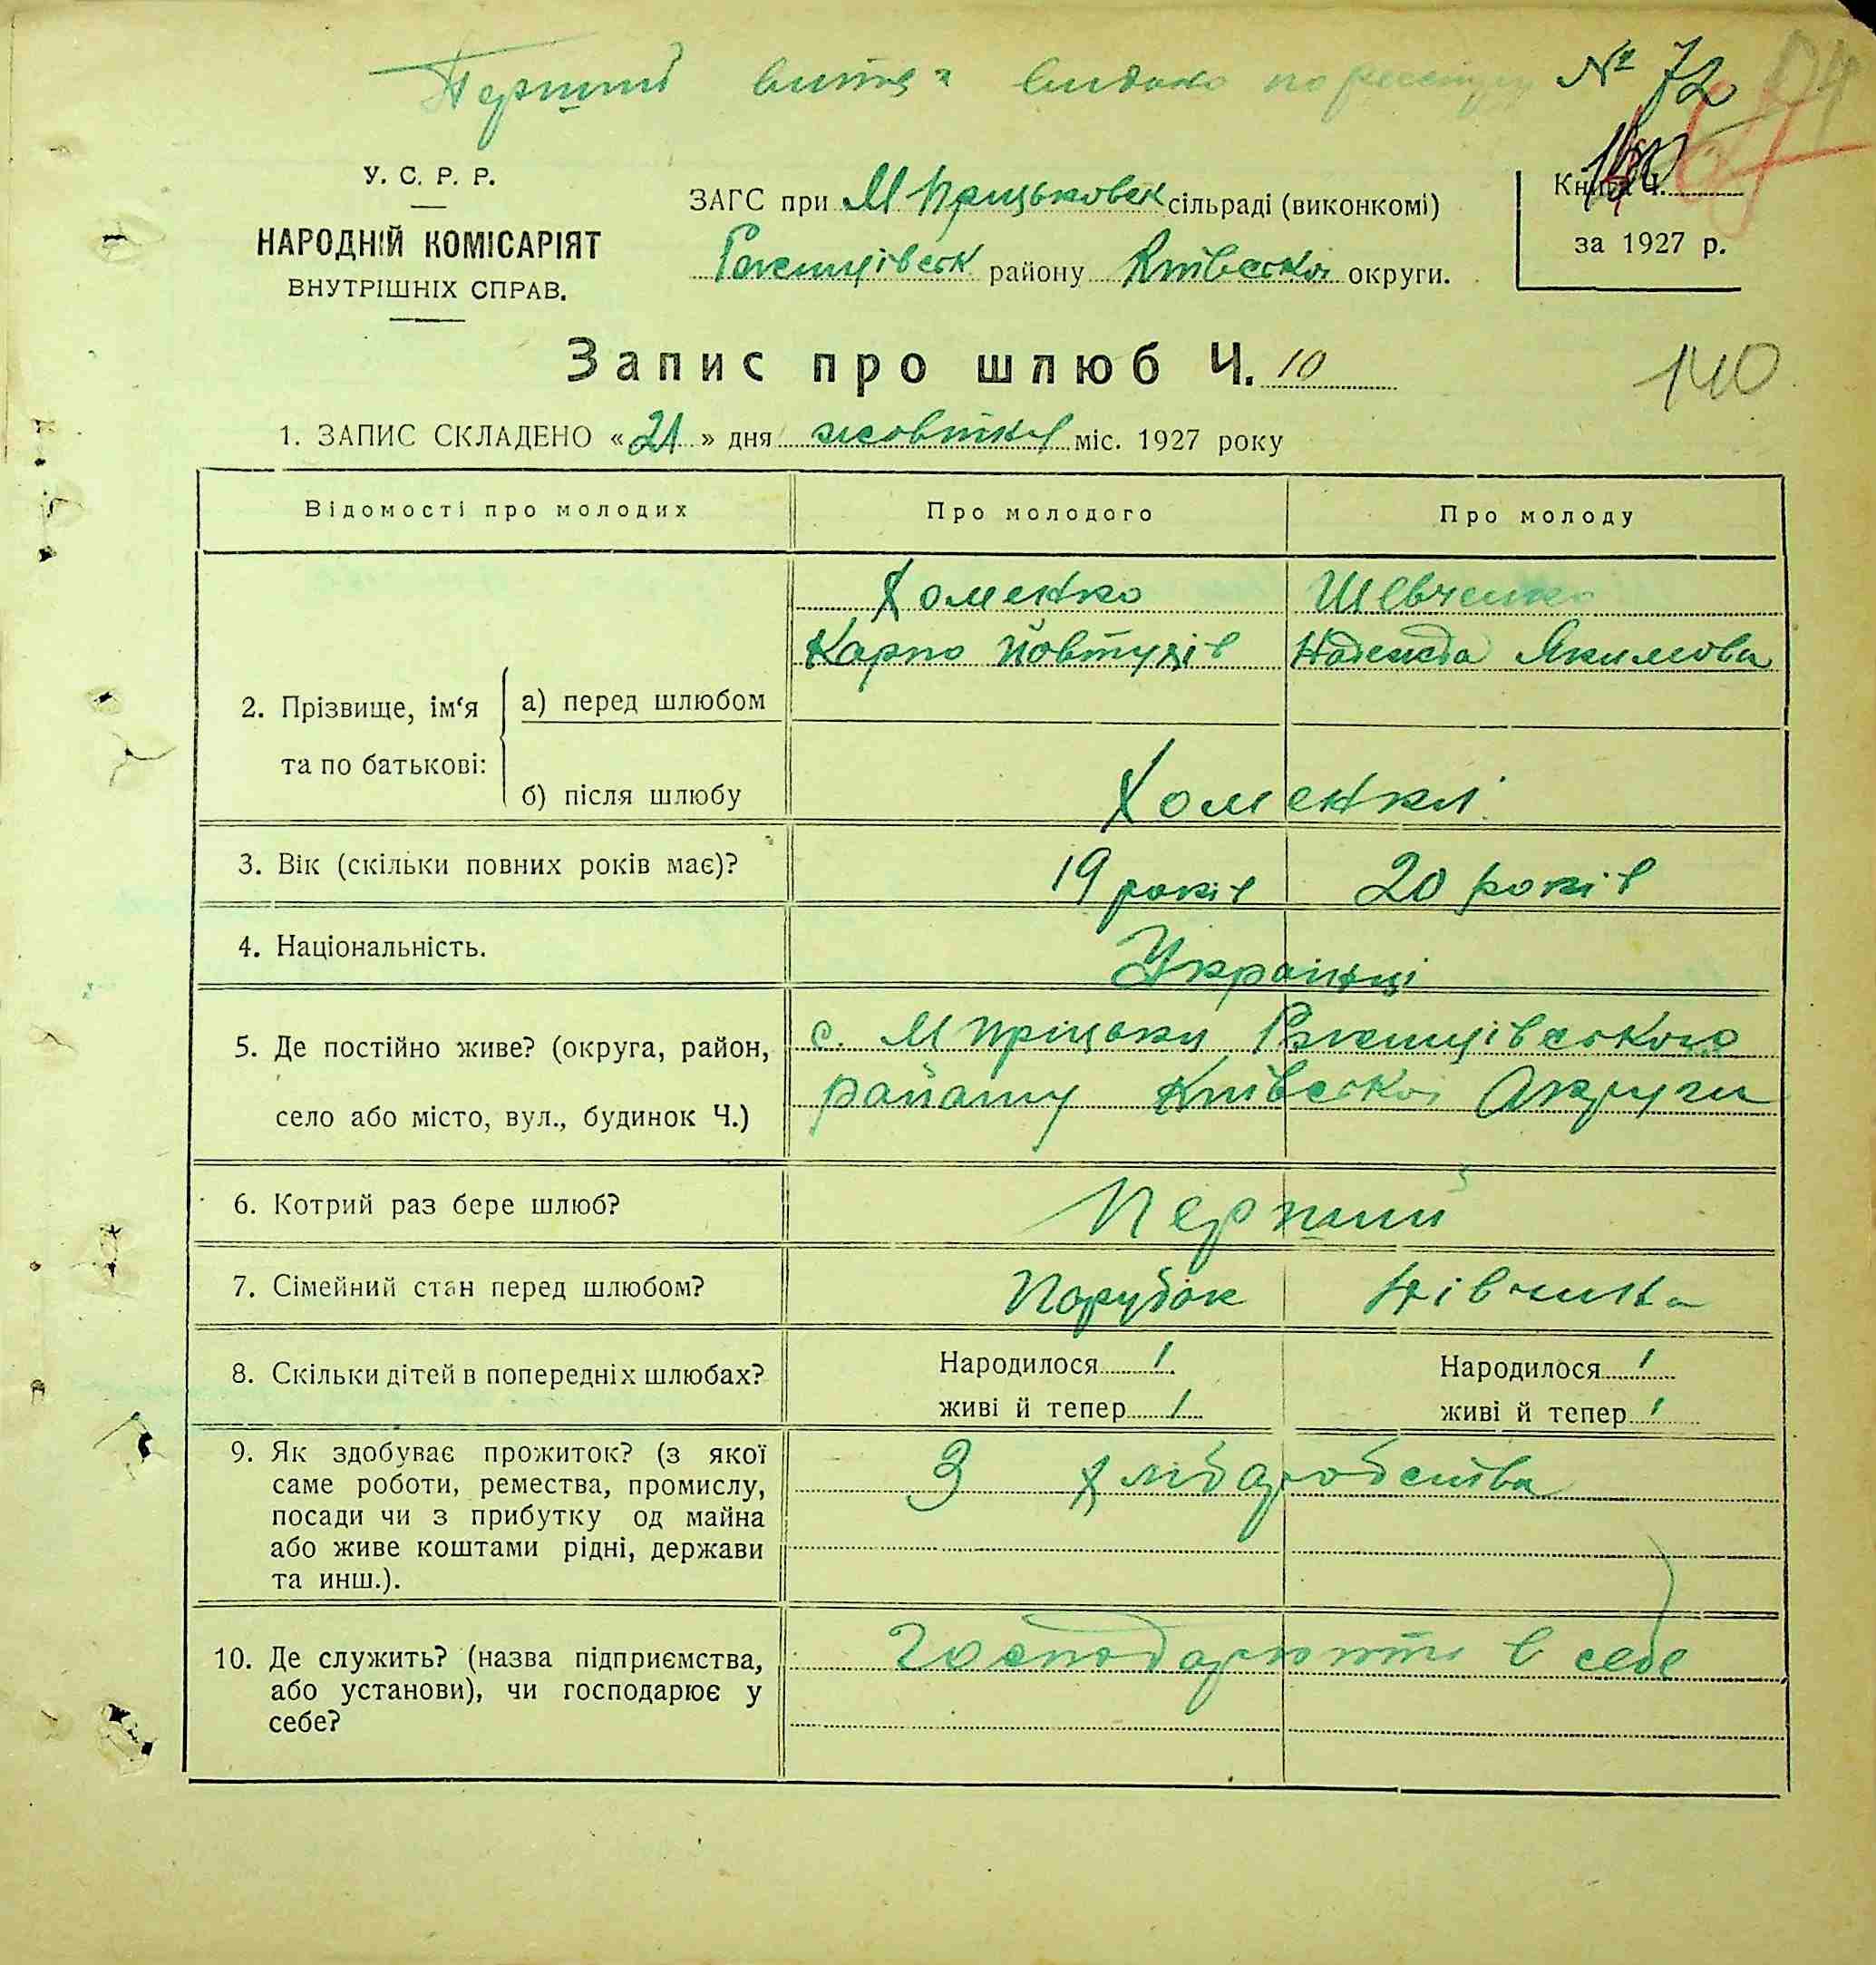 Перший витяг видано по реєстру № 72
У. С. Р. Р.
НАРОДНІЙ КОМІСАРІЯТ
ВНУТРІШНІХ СПРАВ.
ЗАГС при М Прицьковск сільраді (виконкомі)
Ржищівськ району Київської округи.
Книга Ч.
за 1927 р.
Запис про шлюб Ч. 10
140
1. ЗАПИС СКЛАДЕНО «21» дня жовтня міс. 1927 року
Відомості про молодих Про молодого Про молоду
2. Прізвище, ім‘я та по батькові:
а) перед шлюбом
Хоменко Шевченко
Карпо Йовтухів Надежда Якимова
б) після шлюбу Хоменки
3. Вік (скільки повних років має)? 19 років 20 років
4. Національність. Українці
5. Де постійно живе? (округа, район, с. М Пріцьки Ржищівського
село або місто, вул., будинок Ч.) району Київської Округи
6. Котрий раз бере шлюб? Перший
7. Сімейний стан перед шлюбом? Парубок Дівчина
8. Скільки дітей в попередніх шлюбах? Народилося / Народилося /
живі й тепер / живі й тепер /
9. Як здобуває прожиток? (з якої З хліборобства
саме роботи, ремества, промислу,
посади чи з прибутку од майна
або живе коштами рідні, держави
та инш.).
10. Де служить? (назва підприємства, Господарюють в себе
або установи), чи господарює у
себе?